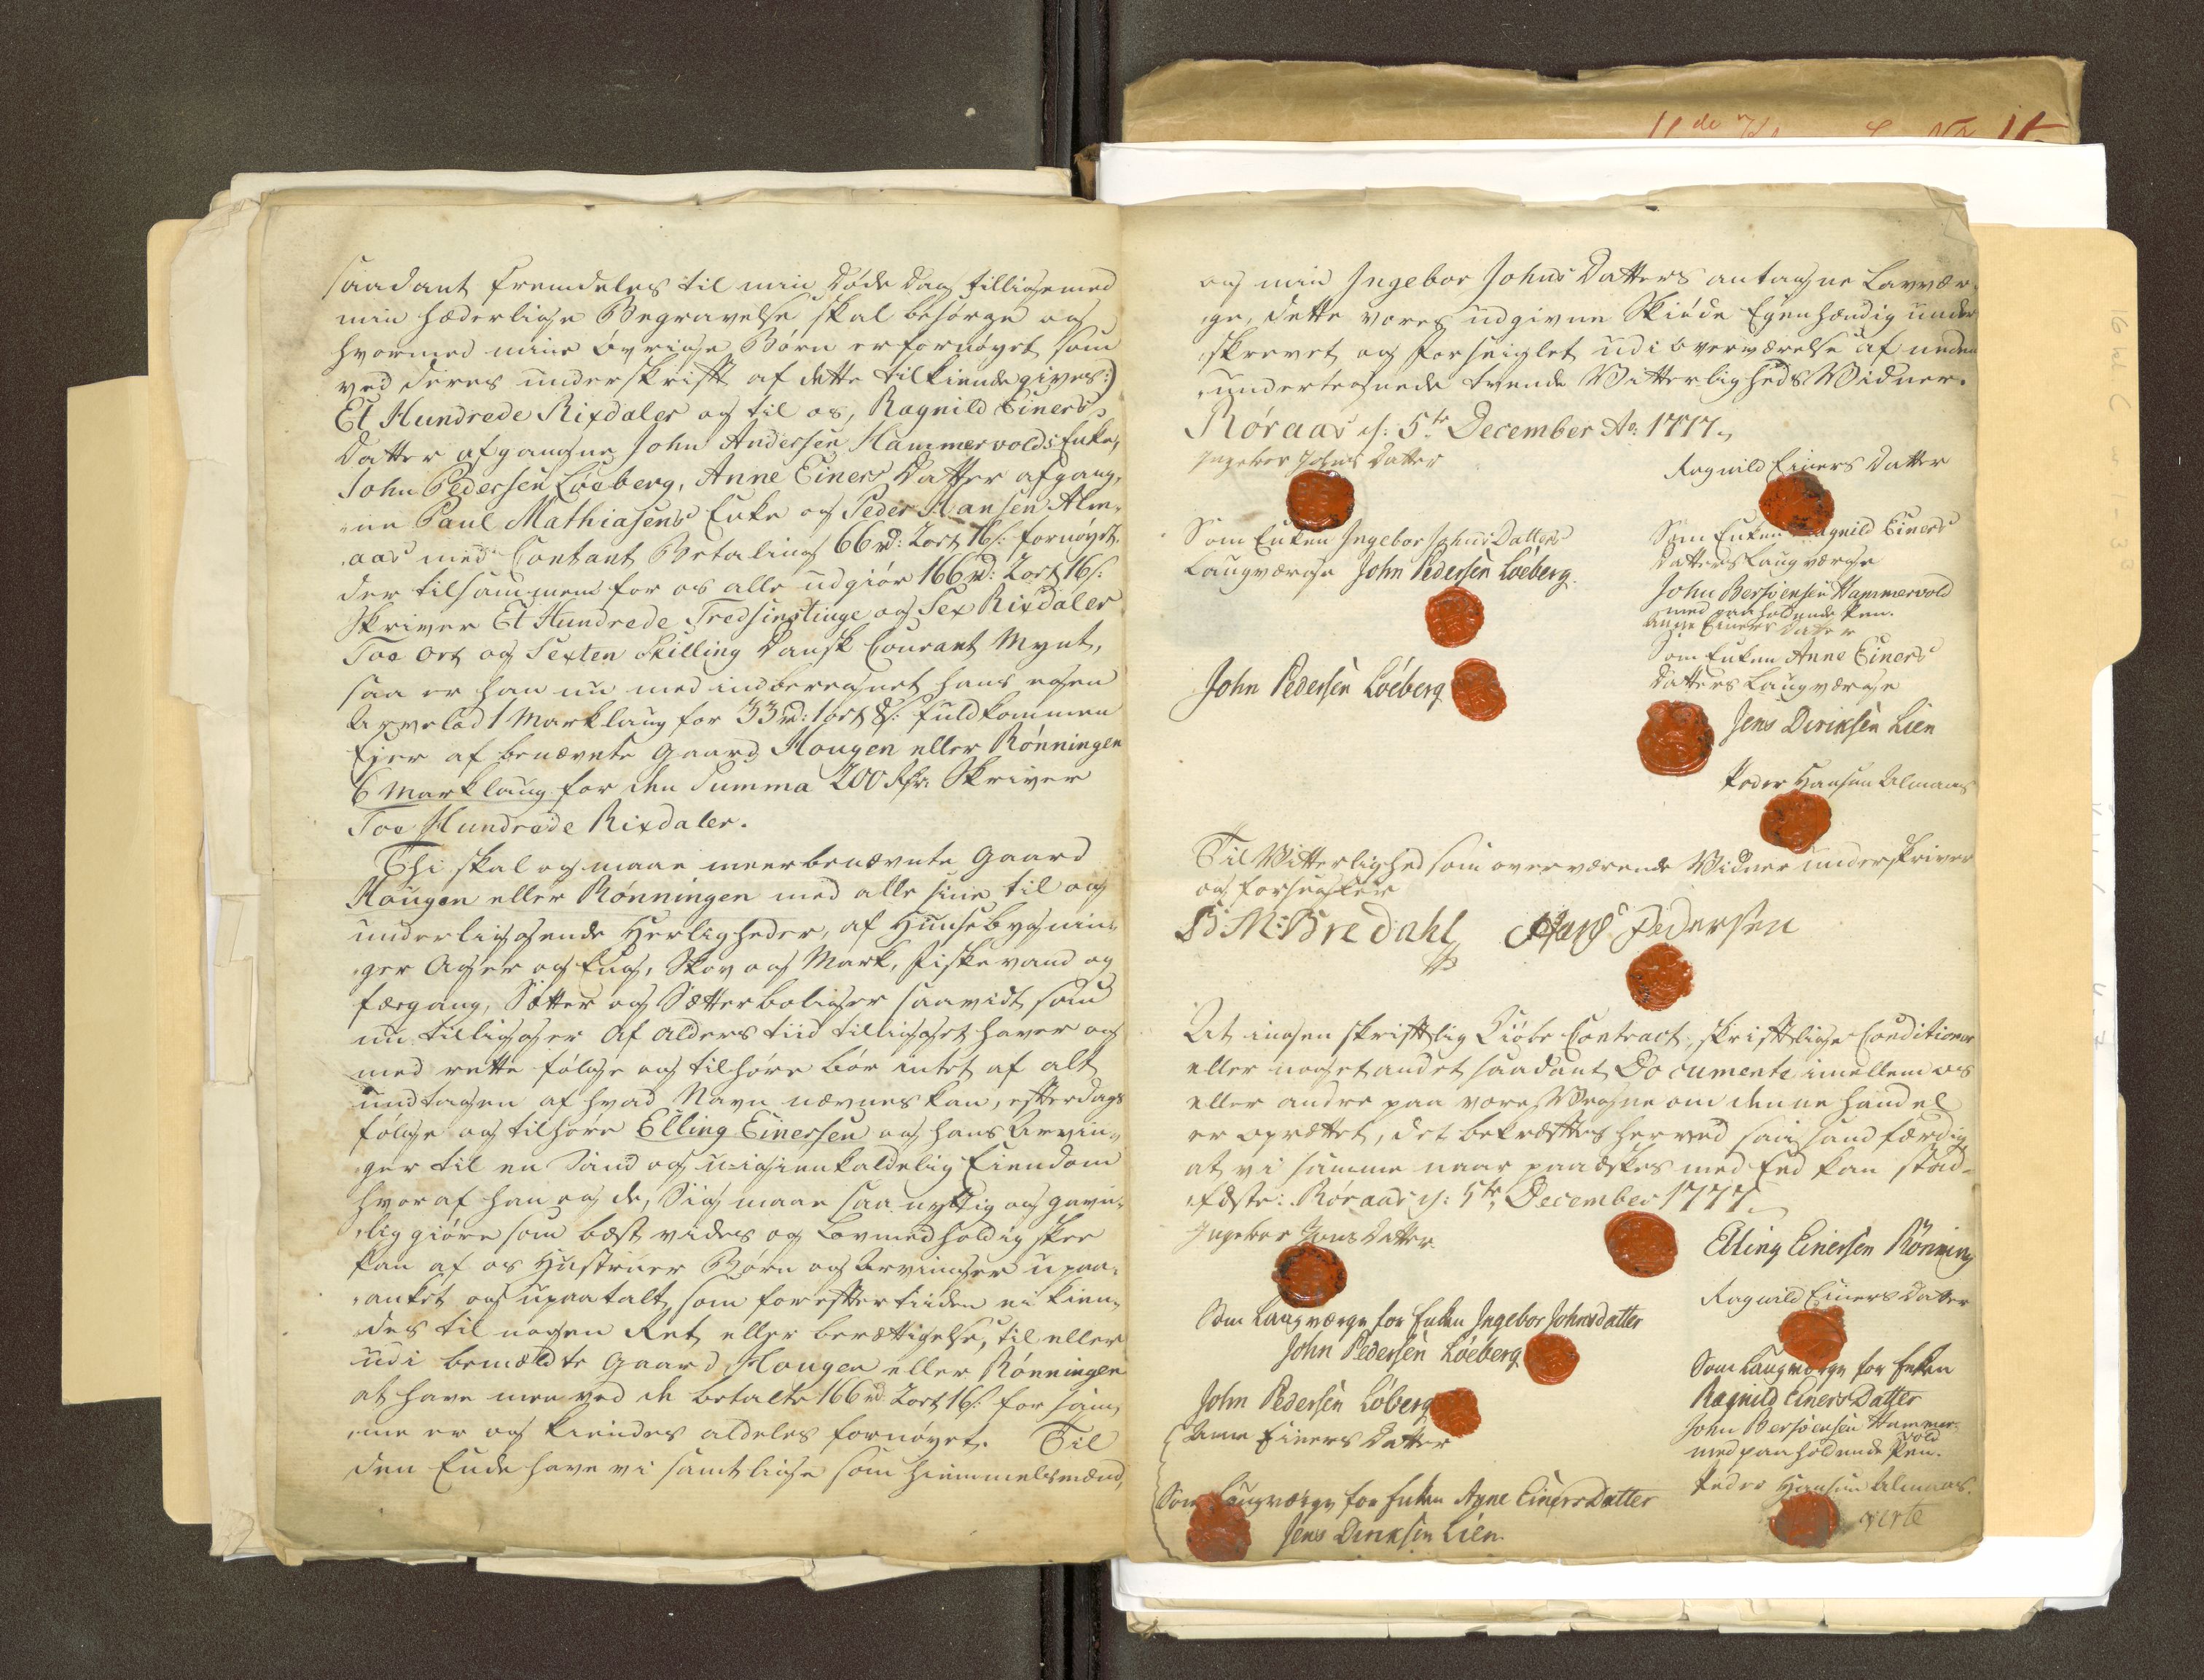 saadant fremdeles til min Døde Dag tilligemed
min hæderlige Begravelse skal besørge og
hvormed mine øvrige Børn er fornøyet som
ved deres underskrift af dette tilkiende gives:)
Et Hundrede Rixdaler og til os, Ragnild Einers
Datter afgangne John Andersen Hammervolds Enke,
John Pedersen Løeberg, Anne Einers Datter afgang,
ne Paul Mathiasens Enke og Peder Hansen Alm,
aas med Contant Betaling 66 rd: 2 ort 16 s: fornøyet
der tilsammens for os alle udgiør 166 rd: 2 ort 16 s:
skriver Et Hundrede Tredsindstinge og Sex Rixdaler
Toe ort og Sexten Skilling Dansk Courant Mynt,
saa er han nu med indberegnet hans egen
Arvelod 1 Marklaug for 33 rd: 1 ort 8 s: fuldkommen
Ejer af benævnte Gaard Hougen eller Rønningen
6 Marklaug for den Summa 200 Rdr. Skriver
Toe Hundrede Rixdaler.
Thi skal og maae meerbenævnte Gaard
Hougen eller Rønningen med alle sine til og
underliggende Herligheder, af Huusebygnin,
ger Ager og Eng, Skov og Mark, fiskevand og
færgang, Sætter og Sætterboliger saavidt som
nu tilligger af alders tiid tilligget haver og
med rette følge og tilhøre bør intet af alt
undtagen af hvad Navn nævnes kan, efterdags
følge og tilhøre Elling Einersen og hans Arvin,
ger til en Sand og uigienkaldelig Eiendom
hvoraf han og de, Sig maae saa nyttig og gavn,
lig giøre som best vides og Lovmedholdig skee
kan af os Hustruer Børn og Arvinger upaa,
anket og upaatalt, som for eftertiiden ei kien,
des til nogen Ret eller berættigelse, til eller
udi bemældte Gaard Hougen eller Rønningen
at have men ved de betalte 166 rd 2 ort 16 s: for sam,
me er og kiendes aldeles fornøyet. Til
den Ende have vi samtlige som hiemmelsmænd,
og min Ingebor Johns Datters antagne Lavvær,
ge, dette vores udgivne Skiøde Egenhændig under
skrevet og forseiglet udi overværelse af neden
undertegnede tvende Vitterligheds Vidner.
Røraas d: 5te December Ao: 1777.
Ingebor Johns Datter
Ragnild Einers Datter
Som Enken Ingebor Johns Datters
Laugværge John Pedersen Løeberg.
Som Enken Ragnild Einers
Datters Laugværge
John Bersvensen Hammervold
med paaholdende Pen.
Anne Einers Datter
Som Enken Anne Einers
Datters Laugværge
John Pedersen Løeberg
Jens Dirichsen Lien
Peder Hansen Almaas
Til Vitterlighed som overværende Vidner underskriver
og forsegler
B: M: Bredahl Hans Pedersen
At ingen skriftlig Kiøbe Contract, skriftlige Conditioner
eller noget andet saadant Documente imellem os
eller andre paa vores Vegne om denne handel
er oprettet, det bekræftes herved saa sandfærdig
at vi samme naar paaæskes med Eed kan stad,
fæste: Røraas d: 5te December 1777
Ingebor Jons Datter
Elling Einersen Rönning
Ragnild Einers Datter
Som Laugværge for Enken Ingebor Johnsdatter
John Pedersen Løeberg
Som Laugværge for Enken
Ragnild Einers Datter
John Bersvensen Hammer,
vold
med paaholdende Pen.
John Pedersen Løberg
Anne Einers Datter
Peder Hansen Almaas.
Som Laugværge for Enken Anne Einers Datter
Jens Dirichsen Lien
verte